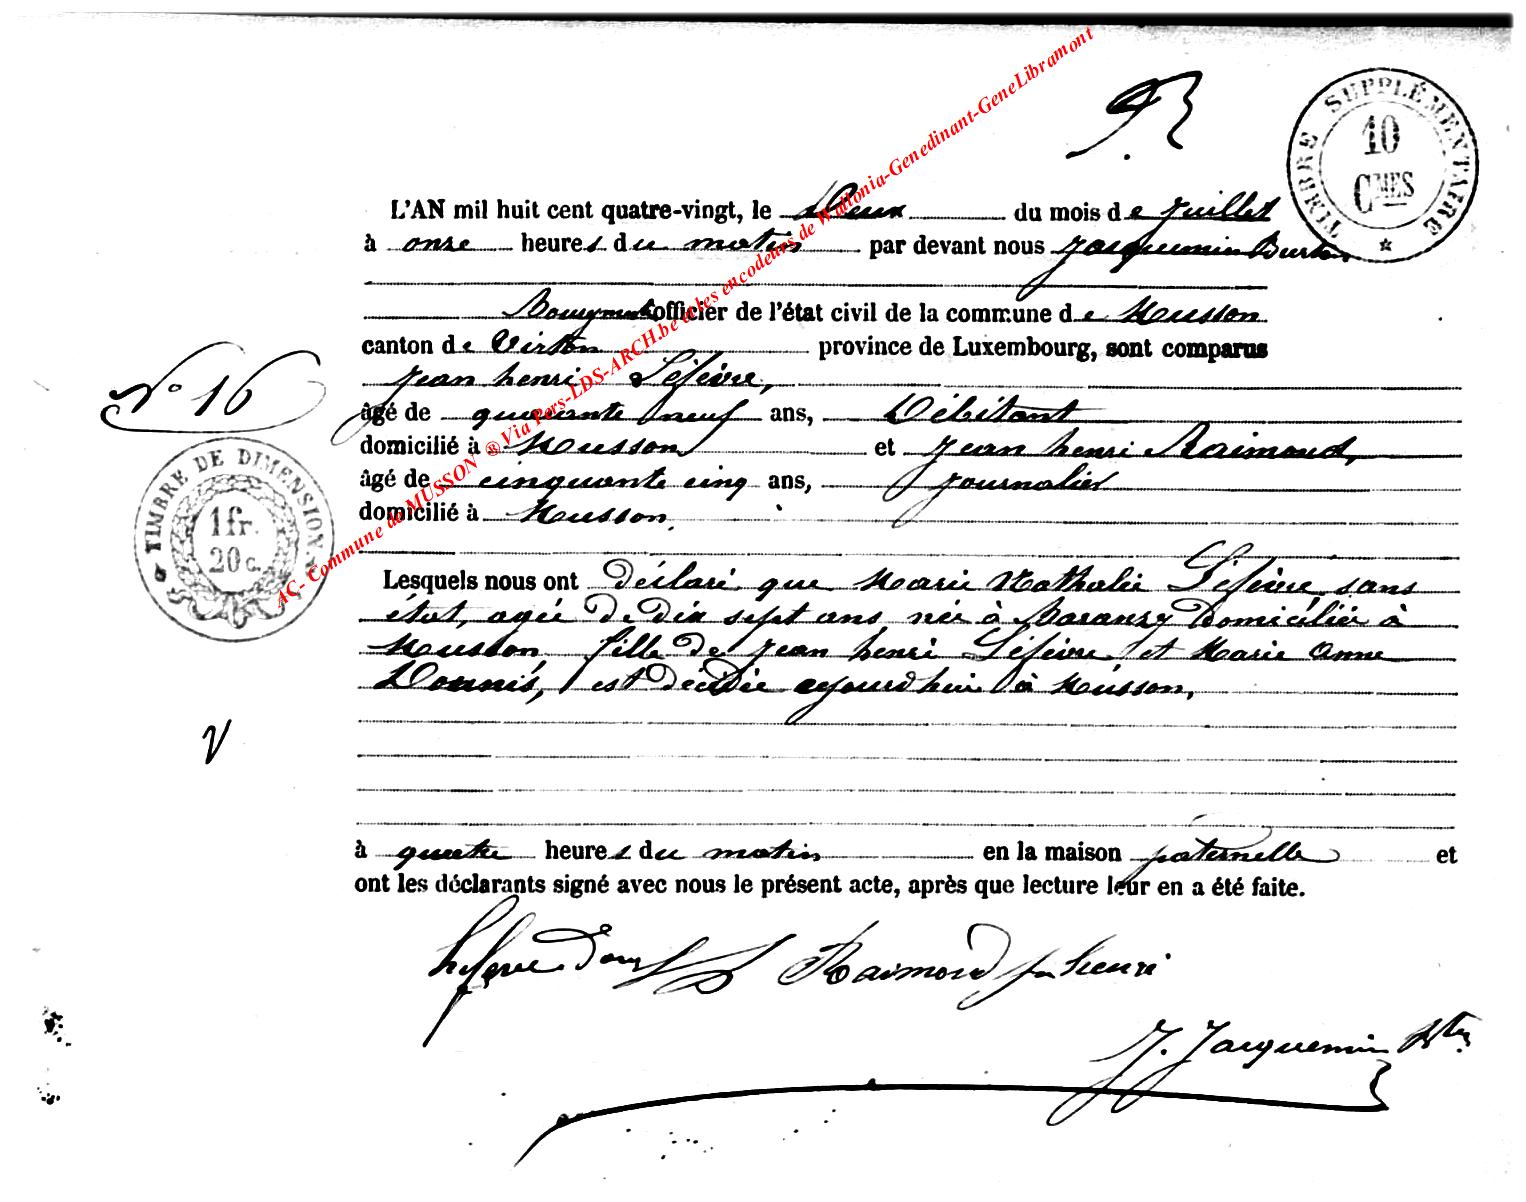 TIMBRE SUPPLÉMENTAIRE
10
CMES
L'AN mil huit cent quatre-vingt, le Deux du mois de Juillet
à onze heures du matin par devant nous Jacquemin Burton
Bourgmestre officier de l'état civil de la commune de Musson
canton de Virton province de Luxembourg, sont comparus
Jean henri Léfèvre,
N° 16
âgé de quarante neuf ans, Débitant
domicilié à Musson et Jean henri Raimond,
âgé de cinquante cinq ans, journalier
domicilié à Musson.
TIMBRE DE DIMENSION
1 fr.
20 c.
Lesquels nous ont déclaré que Marie Nathalie Léfèvre, sans
état, agée de dix sept ans née à Baranzy Domiciliée à
Musson fille de Jean henri Léfèvre et Marie Anne
est décédée aujourd'hui à Musson,
V
à quatre heures du matin en la maison paternelle et
ont les déclarants signé avec nous le présent acte, après que lecture leur en a été faite.
Lefevre Raimond jn henri
J. Jacquemin Btn
AC- Commune de MUSSON ® Via Pers-LDS-ARCH.be et les encodeurs de Wallonia-Genedinant-GeneLibramont